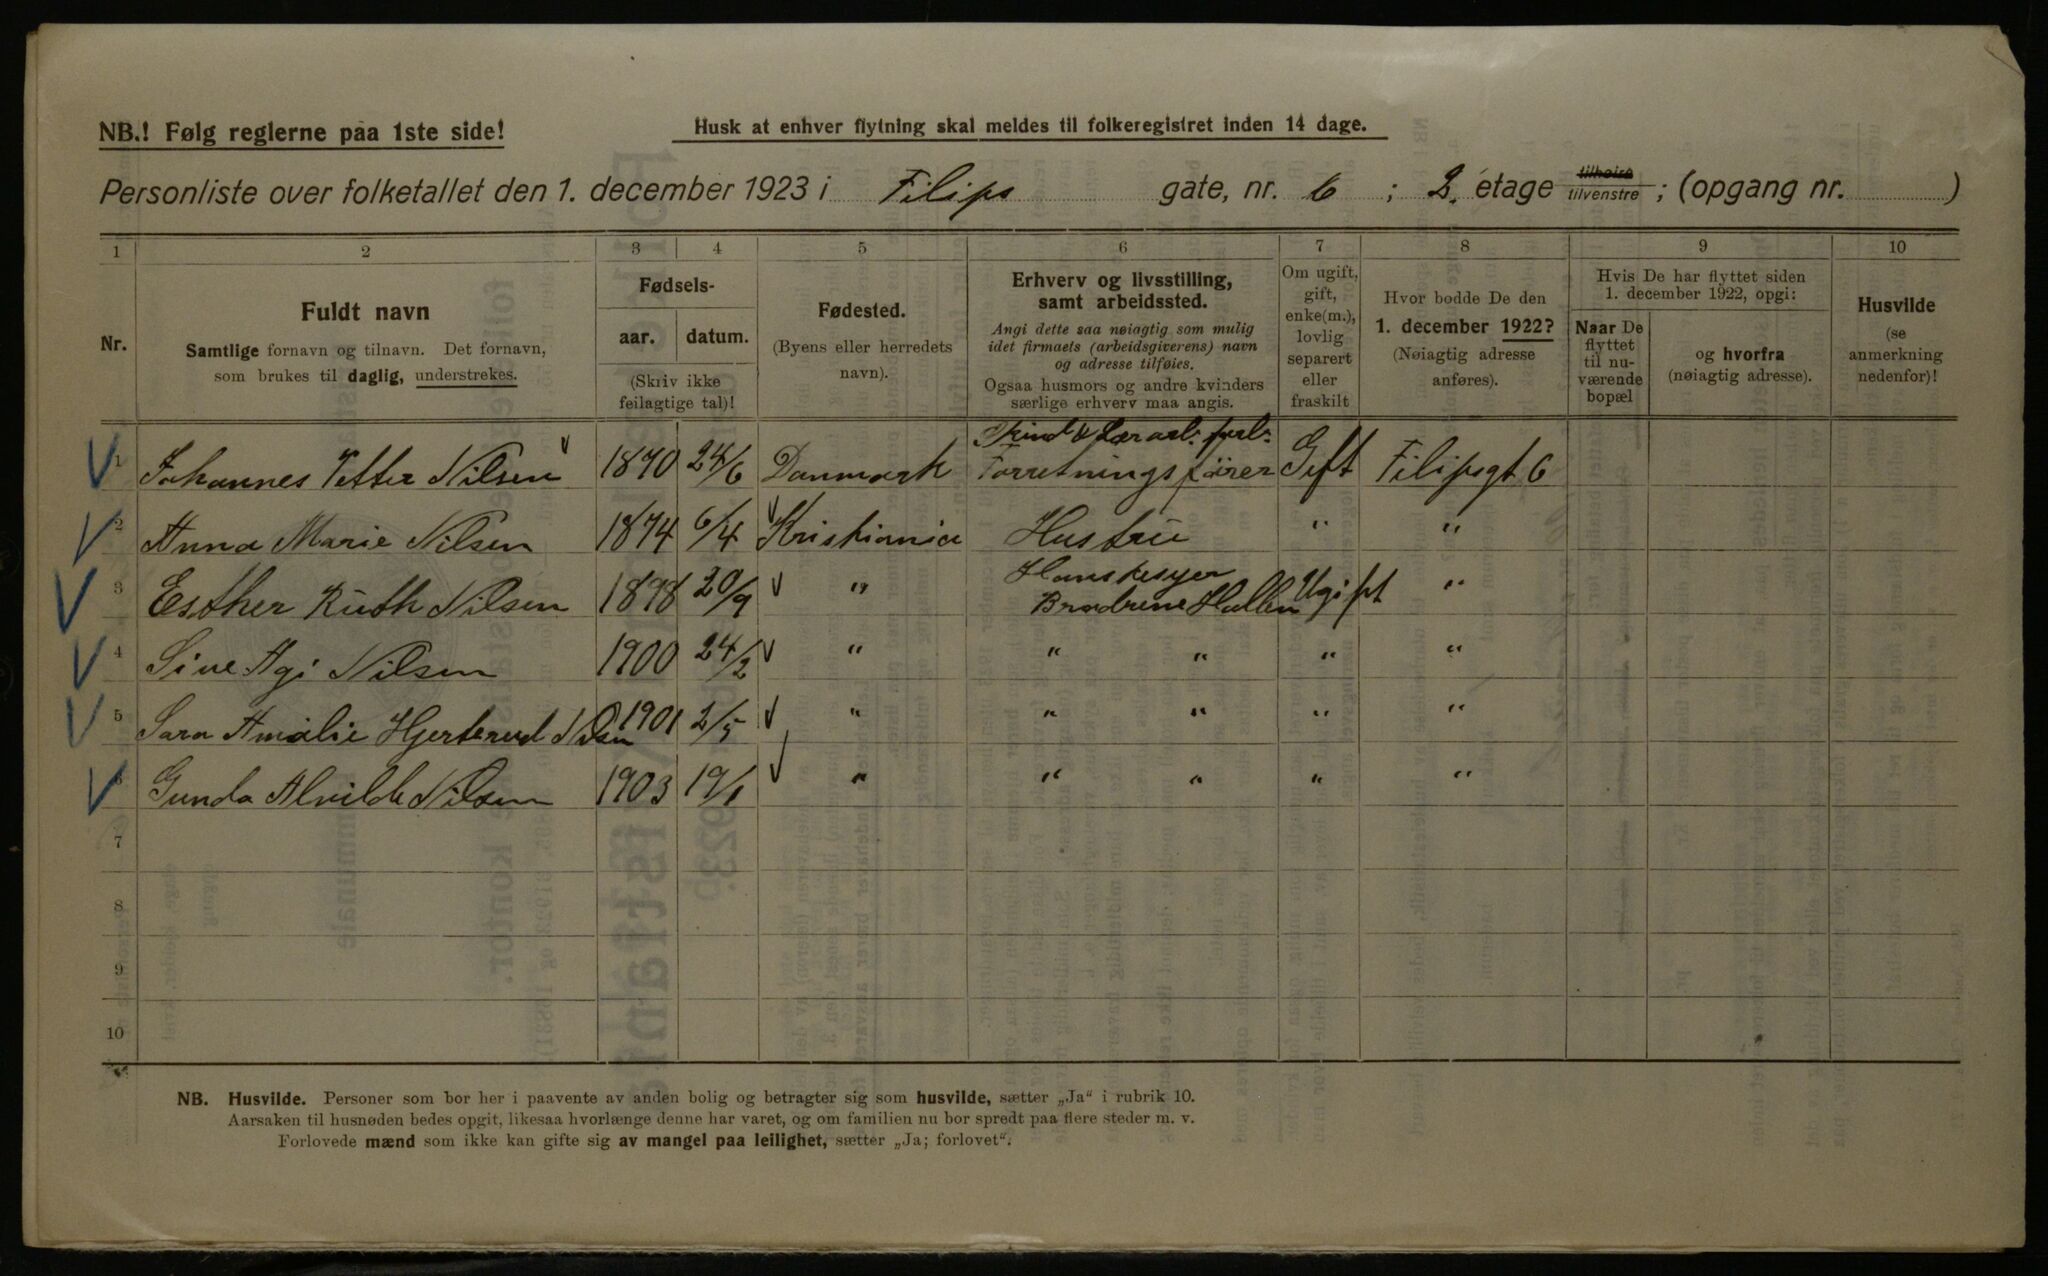 NB.! Følg reglerne paa 1ste side!
Husk at enhver flytning skal meldes til folkeregistret inden 14 dage.
Personliste over folketallet den 1. december 1923 i Filips gate, nr. 6 ; 2. etage tilhøire tilvenstre ; (opgang nr. )
1 2 3 4 5 6 7 8 9 10
Nr.
Fuldt navn
Samtlige fornavn og tilnavn. Det fornavn,
som brukes til daglig, understrekes.
Fødsels-
aar. datum.
(Skriv ikke
feilagtige tal)!
Fødested.
(Byens eller herredets
navn).
Erhverv og livsstilling,
samt arbeidssted.
Angi dette saa nøiagtig som mulig
idet firmaets (arbeidsgiverens) navn
og adresse tilføies.
Ogsaa husmors og andre kvinders
særlige erhverv maa angis.
Om ugift,
gift,
enke(m.),
lovlig
separert
eller
fraskilt
Hvor bodde De den
1. december 1922?
(Nøiagtig adresse
anføres).
Hvis De har flyttet siden
1. december 1922, opgi:
Naar De
flyttet
til nu-
værende
bopæl
og hvorfra
(nøiagtig adresse).
Husvilde
(se
anmerkning
nedenfor)!
Skind & Lærarb: forb:
1 Johannes Vetter Nilsen 1870 24/6 Danmark Forretningsfører Gift Filipsgt 6
2 Anna Marie Nilsen 1874 6/4 Kristiania Hustru " "
Hanskesyer
3 Esther Ruth Nilsen 1898 20/9 " Brødrene Hallén Ugift "
4 Sine Agi Nilsen 1900 24/2 " " " " "
5 Sara Amalie Hjerterud Nilsen 1901 2/5 " " " " "
6 Gunda Alvilde Nilsen 1903 19/1 " " " " "
7
8
9
10
NB. Husvilde. Personer som bor her i paavente av anden bolig og betragter sig som husvilde, sætter „Ja" i rubrik 10.
Aarsaken til husnøden bedes opgit, likesaa hvorlænge denne har varet, og om familien nu bor spredt paa flere steder m. v.
Forlovede mænd som ikke kan gifte sig av mangel paa leilighet, sætter „Ja; forlovet".